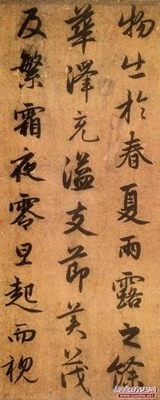 物出於春夏雨露之餘
華澤充溢支節美茂
及繁霜夜零旦起而視